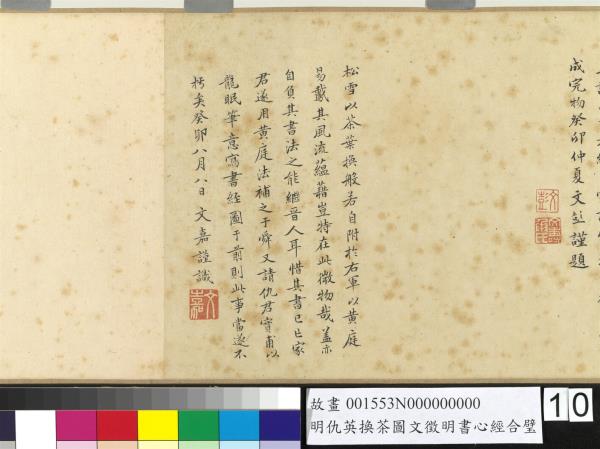 成完物癸卯仲夏文彭謹題
松雪以茶葉換般若自附於右軍以黃庭
易鵞其風流蘊藉豈特在此微物哉蓋亦
自負其書法之能繼晉人耳惜其書已亡家
君遂用黃庭法補之于舜又請仇君實甫以
龍眠筆意寫書經圖于前則此事當遂不
朽矣癸卯八月八日文嘉謹識
故畫 001553N000000000
明仇英換茶圖文徵明書心經合璧
10